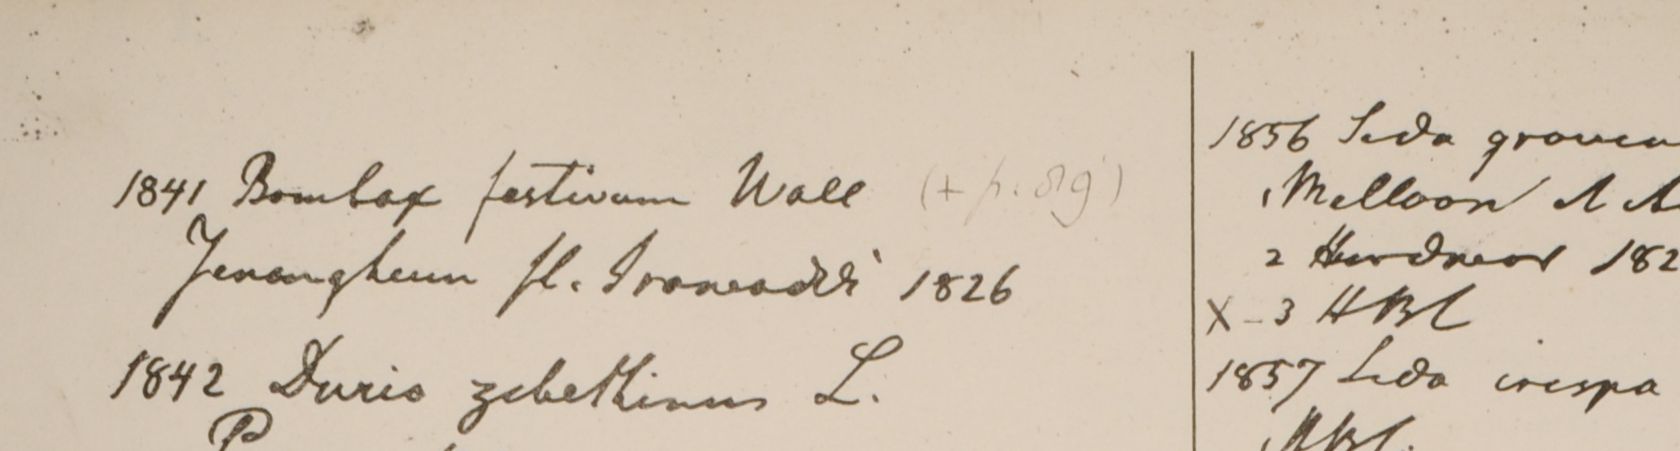 1841 Bombax festivum Wall (+ p. 89)
Jenangheum fl. Irawaddi 1826
1842 Durio zibethinus L.
1856 Sida graveo
Melloon
2 Hurdwar 182
X - 3 HBC
1857 Sida crispa
HBC.